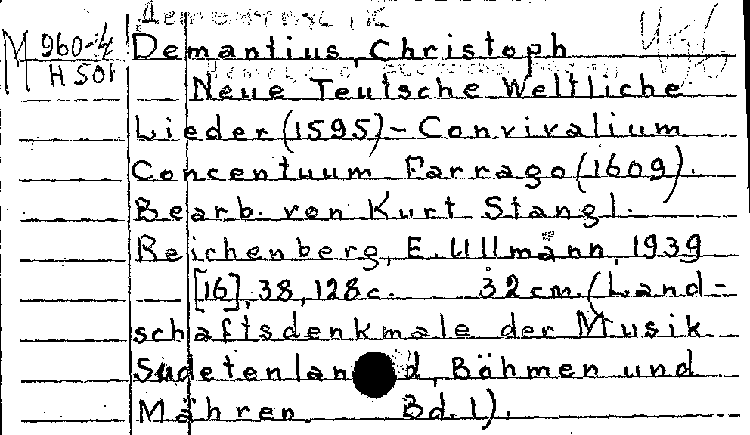 M 960-4
H 501
Demantius, Christoph
Neue Teutsche Weltliche
Lieder (1595) - Convivalium
Concentuum Farrago (1609).
Bearb. von Kurt Stangl.
Reichenberg, E. Ullmann, 1939
[16], 38, 128 c. 32 cm. (Land-
schaftsdenkmale der Musik
Sudetenland, Böhmen und
Mähren Bd. 1).